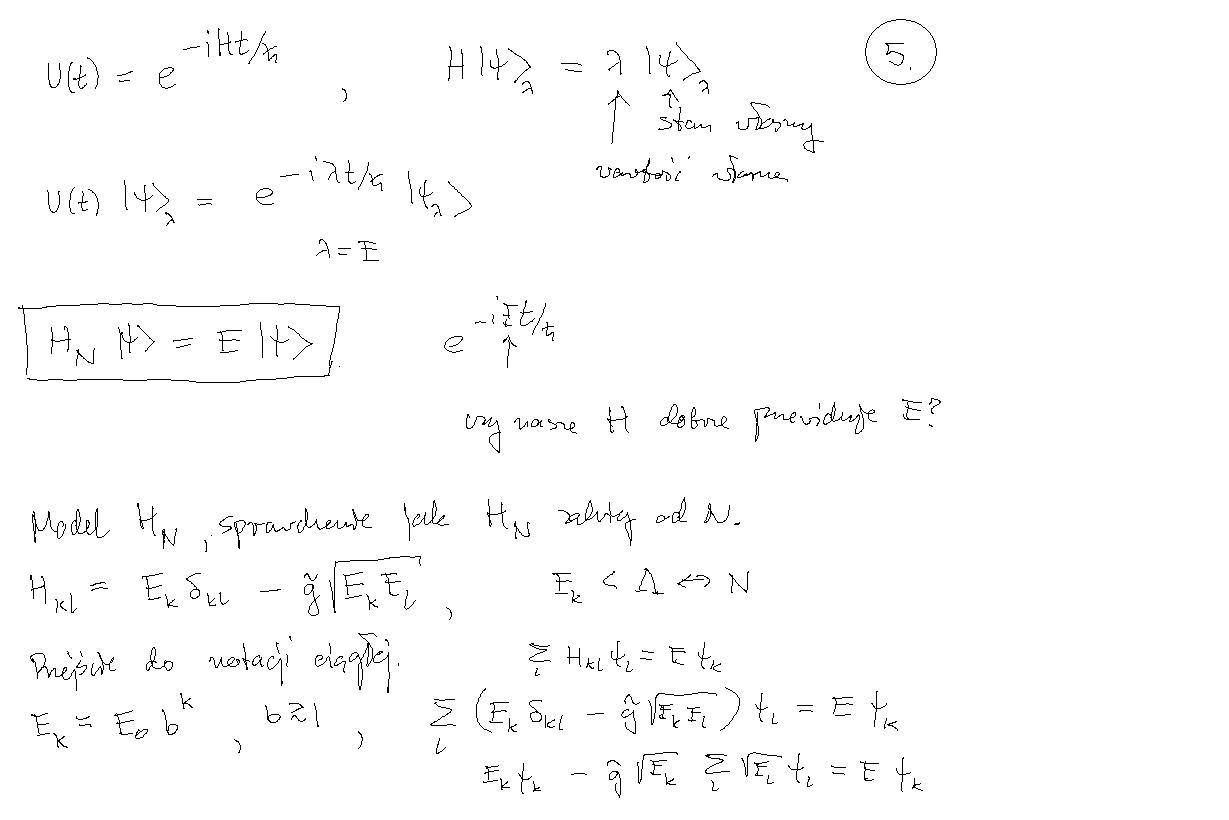 U(t) = e^{-iHt/ħ} , H |ψ⟩_λ = λ |ψ⟩_λ 5.
↑ ↑ stan własny
wartość własna
U(t) |ψ⟩_λ = e^{-iλt/ħ} |ψ_λ⟩
λ = E
H_N |ψ⟩ = E |ψ⟩ . e^{-iEt/ħ}
↑
czy nasze H dobrze przewiduje E?
Model H_N , sprawdzenie jak H_N zależy od N.
H_{kl} = E_k δ_{kl} - g̃ √(E_k E_l) , E_k < Λ ↔ N
Przejście do notacji ciągłej. Σ_l H_{kl} ψ_l = E ψ_k
E_k = E_0 b^k , b ≳ 1 , Σ_l (E_k δ_{kl} - g̃ √(E_k E_l)) ψ_l = E ψ_k
E_k ψ_k - g̃ √E_k Σ_l √E_l ψ_l = E ψ_k